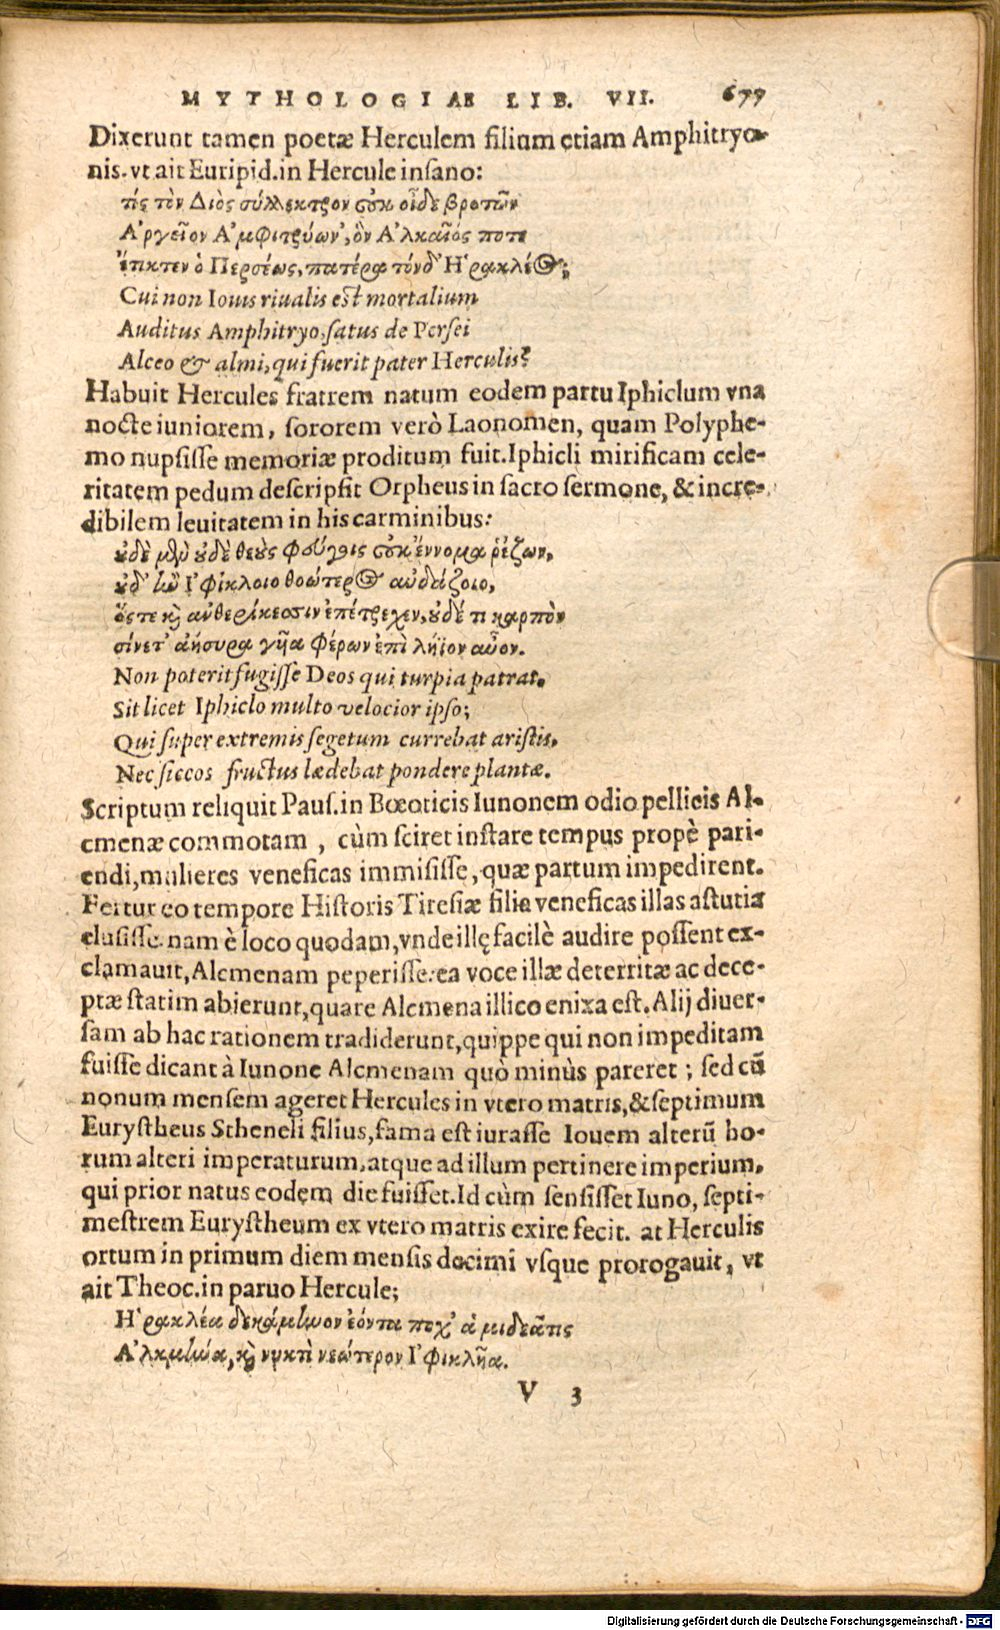 MYTHOLOGIAE LIB. VII. 677
Dixerunt tamen poetæ Herculem filium etiam Amphitryo-
nis. vt ait Euripid. in Hercule insano:
τίς τὸν Διὸς σύλλεκτρον οὐκ οἶδε βροτῶν
Ἀργεῖον Ἀμφιτρύων', ὃν Ἀλκαῖός ποτε
ἔτικτεν ὁ Περσέως, πατέρα τόνδ' Ἡρακλέος;
Cui non Iouis riualis est mortalium
Auditus Amphitryo, satus de Persei
Alceo & almi, qui fuerit pater Herculis?
Habuit Hercules fratrem natum eodem partu Iphiclum vna
nocte iuniorem, sororem verò Laonomen, quam Polyphe-
mo nupsisse memoriæ proditum fuit. Iphicli mirificam cele-
ritatem pedum descripsit Orpheus in sacro sermone, & incre-
dibilem leuitatem in his carminibus:
οὐδὲ μὲν οὐδὲ θεοὺς φούξεις οὐκ ἔννομα ῥέζων,
οὐδ' ἢν Ἰφίκλοιο θοώτερος αὐδάζοιο,
ὅςτε καὶ ἀνθερίκεσσιν ἐπέτρεχεν, οὐδέ τι καρπὸν
σίνετ' ἀήσυρα γῆα φέρων ἐπὶ λήϊον αὖον.
Non poterit fugisse Deos qui turpia patrat.
Sit licet Iphiclo multo velocior ipso;
Qui super extremis segetum currebat aristis,
Nec siccos fructus lædebat pondere plantæ.
Scriptum reliquit Paus. in Bœoticis Iunonem odio pellicis Al-
cmenæ commotam, cùm sciret instare tempus propè pari-
endi, mulieres veneficas immisisse, quæ partum impedirent.
Fertur eo tempore Historis Tiresiæ filia veneficas illas astutia
elusisse. nam è loco quodam, vnde illę facilè audire possent ex-
clamauit, Alcmenam peperisse. ea voce illæ deterritæ ac dece-
ptæ statim abierunt, quare Alcmena illico enixa est. Alij diuer-
sam ab hac rationem tradiderunt, quippe qui non impeditam
fuisse dicant à Iunone Alcmenam quò minùs pareret; sed cū
nonum mensem ageret Hercules in vtero matris, & septimum
Eurystheus Stheneli filius, fama est iurasse Iouem alterū ho-
rum alteri imperaturum, atque ad illum pertinere imperium,
qui prior natus eodem die fuisset. Id cùm sensisset Iuno, septi-
mestrem Eurystheum ex vtero matris exire fecit. at Herculis
ortum in primum diem mensis decimi vsque prorogauit, vt
ait Theoc. in paruo Hercule;
Ἡρακλέα δεκάμηνον ἐόντα ποχ' ἁ μιδεᾶτις
Ἀλκμήνα, καὶ νυκτὶ νεώτερον Ἰφικλῆα.
V 3
Digitalisierung gefördert durch die Deutsche Forschungsgemeinschaft - DFG